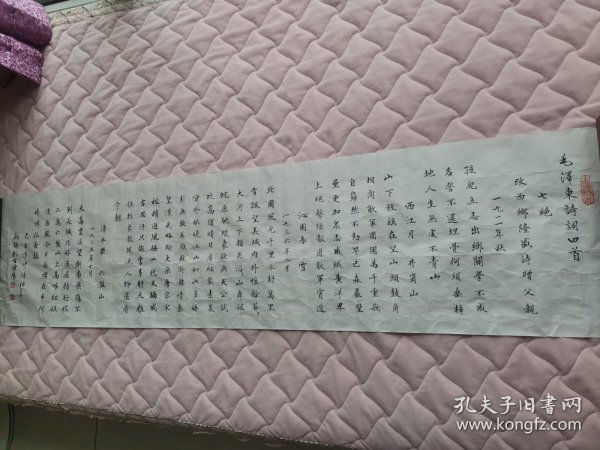 毛澤東詩詞四首
七絕
改西鄉隆盛詩贈父親
一九一〇年秋
孩兒立志出鄉關學不成
名誓不還埋骨何須桑梓
地人生無處不青山
西江月 井岡山
山下旌旗在望山頭鼓角
相聞敵軍圍困萬千重我
自巋然不動早已森嚴壁
壘更加眾志成城黃洋界
上炮聲隆報道敵軍宵遁
沁園春 雪
北國風光千里冰封萬里
雪飄望長城內外惟餘莽
大河上下頓失滔山舞銀
蛇原馳蠟象欲與天公試
比高須晴日看紅裝素裹
分外妖嬈江山如此多嬌
引無數英雄競折腰惜秦
皇漢武略輸文采唐宗宋
祖稍遜風騷一代天驕成
吉思汗只識彎弓射大雕
俱往矣數風流人物還看
今朝
清平樂 六盤山
天高雲淡望斷南飛雁不
到長城非好漢屈指行程
二萬六盤山上高峰紅旗
漫捲西風今日長纓在手何
時縛住蒼龍
孔夫子旧书网
www.kongfz.com